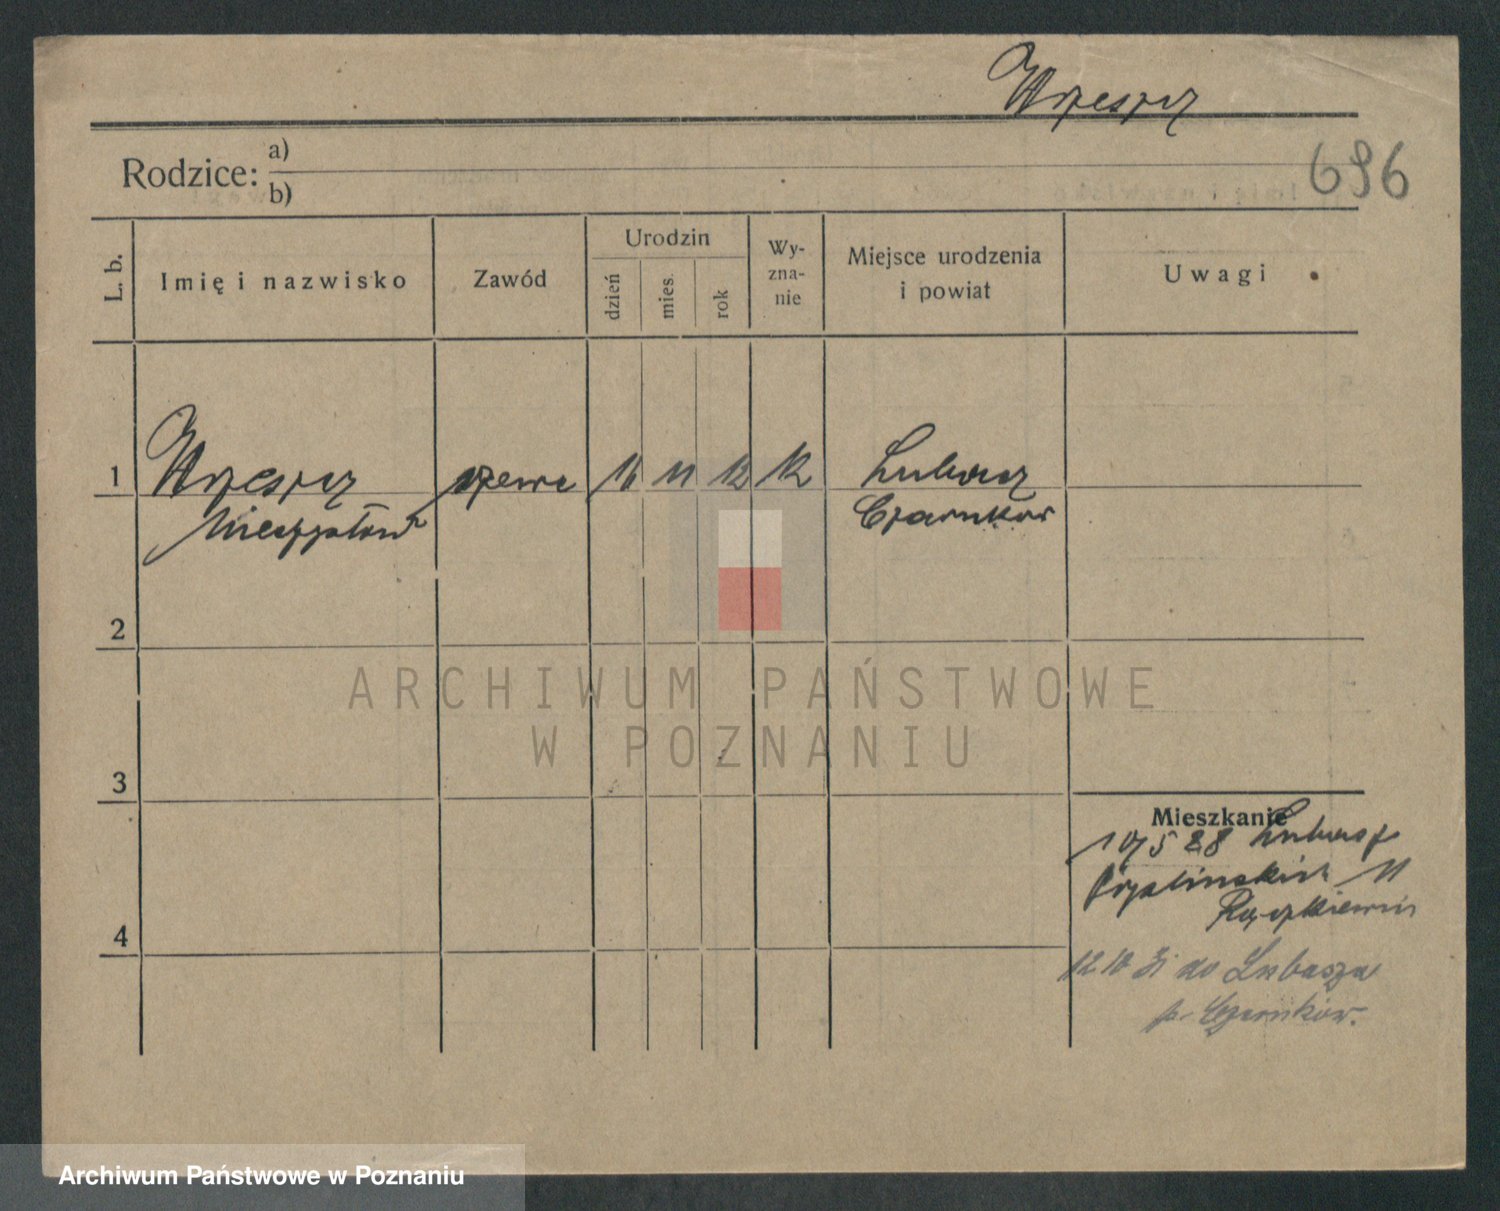 Wrzeszcz
Rodzice: a)
b)
696
L. b.
Imię i nazwisko
Zawód
Urodzin
dzień
mies.
rok
Wy-
zna-
nie
Miejsce urodzenia
i powiat
Uwagi
1
Wrzeszcz
Mieczysław
szewc
11
12
Lubasz
Czarnków
2
ARCHIWUM PAŃSTWOWE
W POZNANIU
3
Mieszkanie
5 28 Lubasz
11
4
12 10 31 do Lubasza
p. Czarnków.
Archiwum Państwowe w Poznaniu